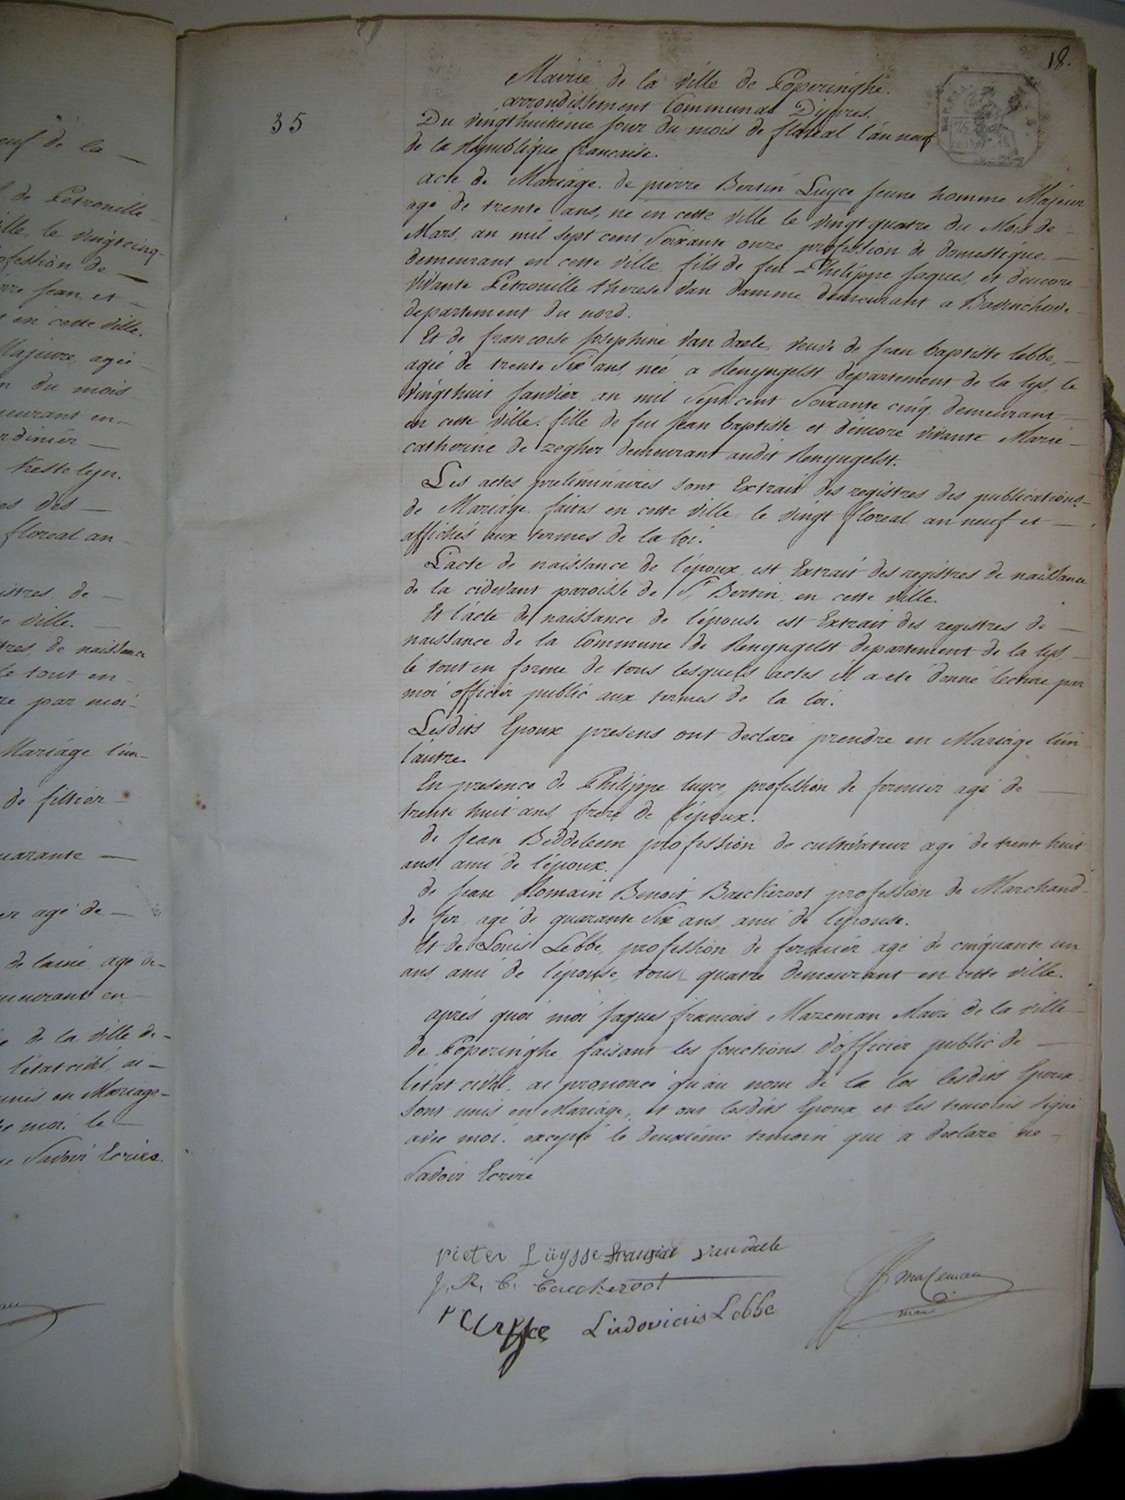 euf de la —
de Petronille
ville, le vingt cinq
profession de —
pierre Jean et —
t en cette ville.
Majeure, agée
n du mois
demeurant en
Jardinier —
Kestelyn.
es des —
floreal an
istres de —
e ville. —
tres de naissance
le tout en
re par moi
Mariage l'un
de filtier
quarante —
er agé de —
de laine, agé de
demeurant en
e de la ville de
l'état civil, ai
unis en Mariage
moi, le —
Savoir Ecrire.
18.
35
Mairie de la ville de Poperinghe.
arrondissement Communal D'ypres
Du vingthuitieme jour du mois de floreal l'an neuf
de la Republique francaise.
acte de Mariage de pierre Bertin Luyce jeune homme Majeur
agé de trente ans, né en cette ville le vingt quatre du Mois de
Mars, an mil sept cent Soixante onze profession de domestique —
demeurant en cette ville, fils de feu Philippe Jaques, et d'encore
Vivante Petronille therese Van Damme demeurant a
departement du nord.
Et de francoise Josephine Van daele, veuve de Jean baptiste Lebbe, —
agée de trente Six ans née a Renyngelst departement de la Lys, le
Vingthuit Janvier an mil Sept cent Soixante cinq demeurant
en cette ville. fille de feu Jean baptiste et d'encore vivante Marie
catherine de zegher demeurant audit Renyngelst.
Les actes preliminaires sont Extrait des registres des publications
de Mariage faites en cette ville le vingt floreal an neuf et —
affichés aux termes de la loi.
L'acte de naissance de l'époux est Extrait des registres de naissance
de la cidevant paroisse de St Bertin en cette ville.
Et l'acte de naissance de l'épouse est Extrait des registres de —
naissance de la Commune de Renyngelst departement de la Lys —
le tout en forme de tous lesquels actes il a eté donné lecture par
moi officier public aux termes de la loi.
Lesdits Epoux presens ont declaré prendre en Mariage l'un
l'autre
En presence de Philippe Luyce, profession de fermier agé de —
trente huit ans, frere de l'époux.
de Jean Beddeleem profession de cultivateur agé de trente huit
ans ami de l'époux,
de Jean Romain Benoit Baeckeroot profession de Marchand
de fer, agé de quarante Six ans, ami de l'épouse.
Et de Louis Lebbe, profession de fermier agé de cinquante un
ans, ami de l'épouse, tous quatre demeurant en cette ville.
aprés quoi moi Jaques francois Mazeman Maire de la ville
de Poperinghe faisant les fonctions d'officier public de —
l'état civil ai prononcé qu'au nom de la loi lesdits Epoux
Sont unis en Mariage, et ont lesdits Epoux et les temoins signé
avec moi excepté le deuxiéme temoin qui a declaré ne —
Savoir Ecrire
Pieter Luysse
J. R. B. Baeckeroot
Ludovicus Lebbe
Mazeman